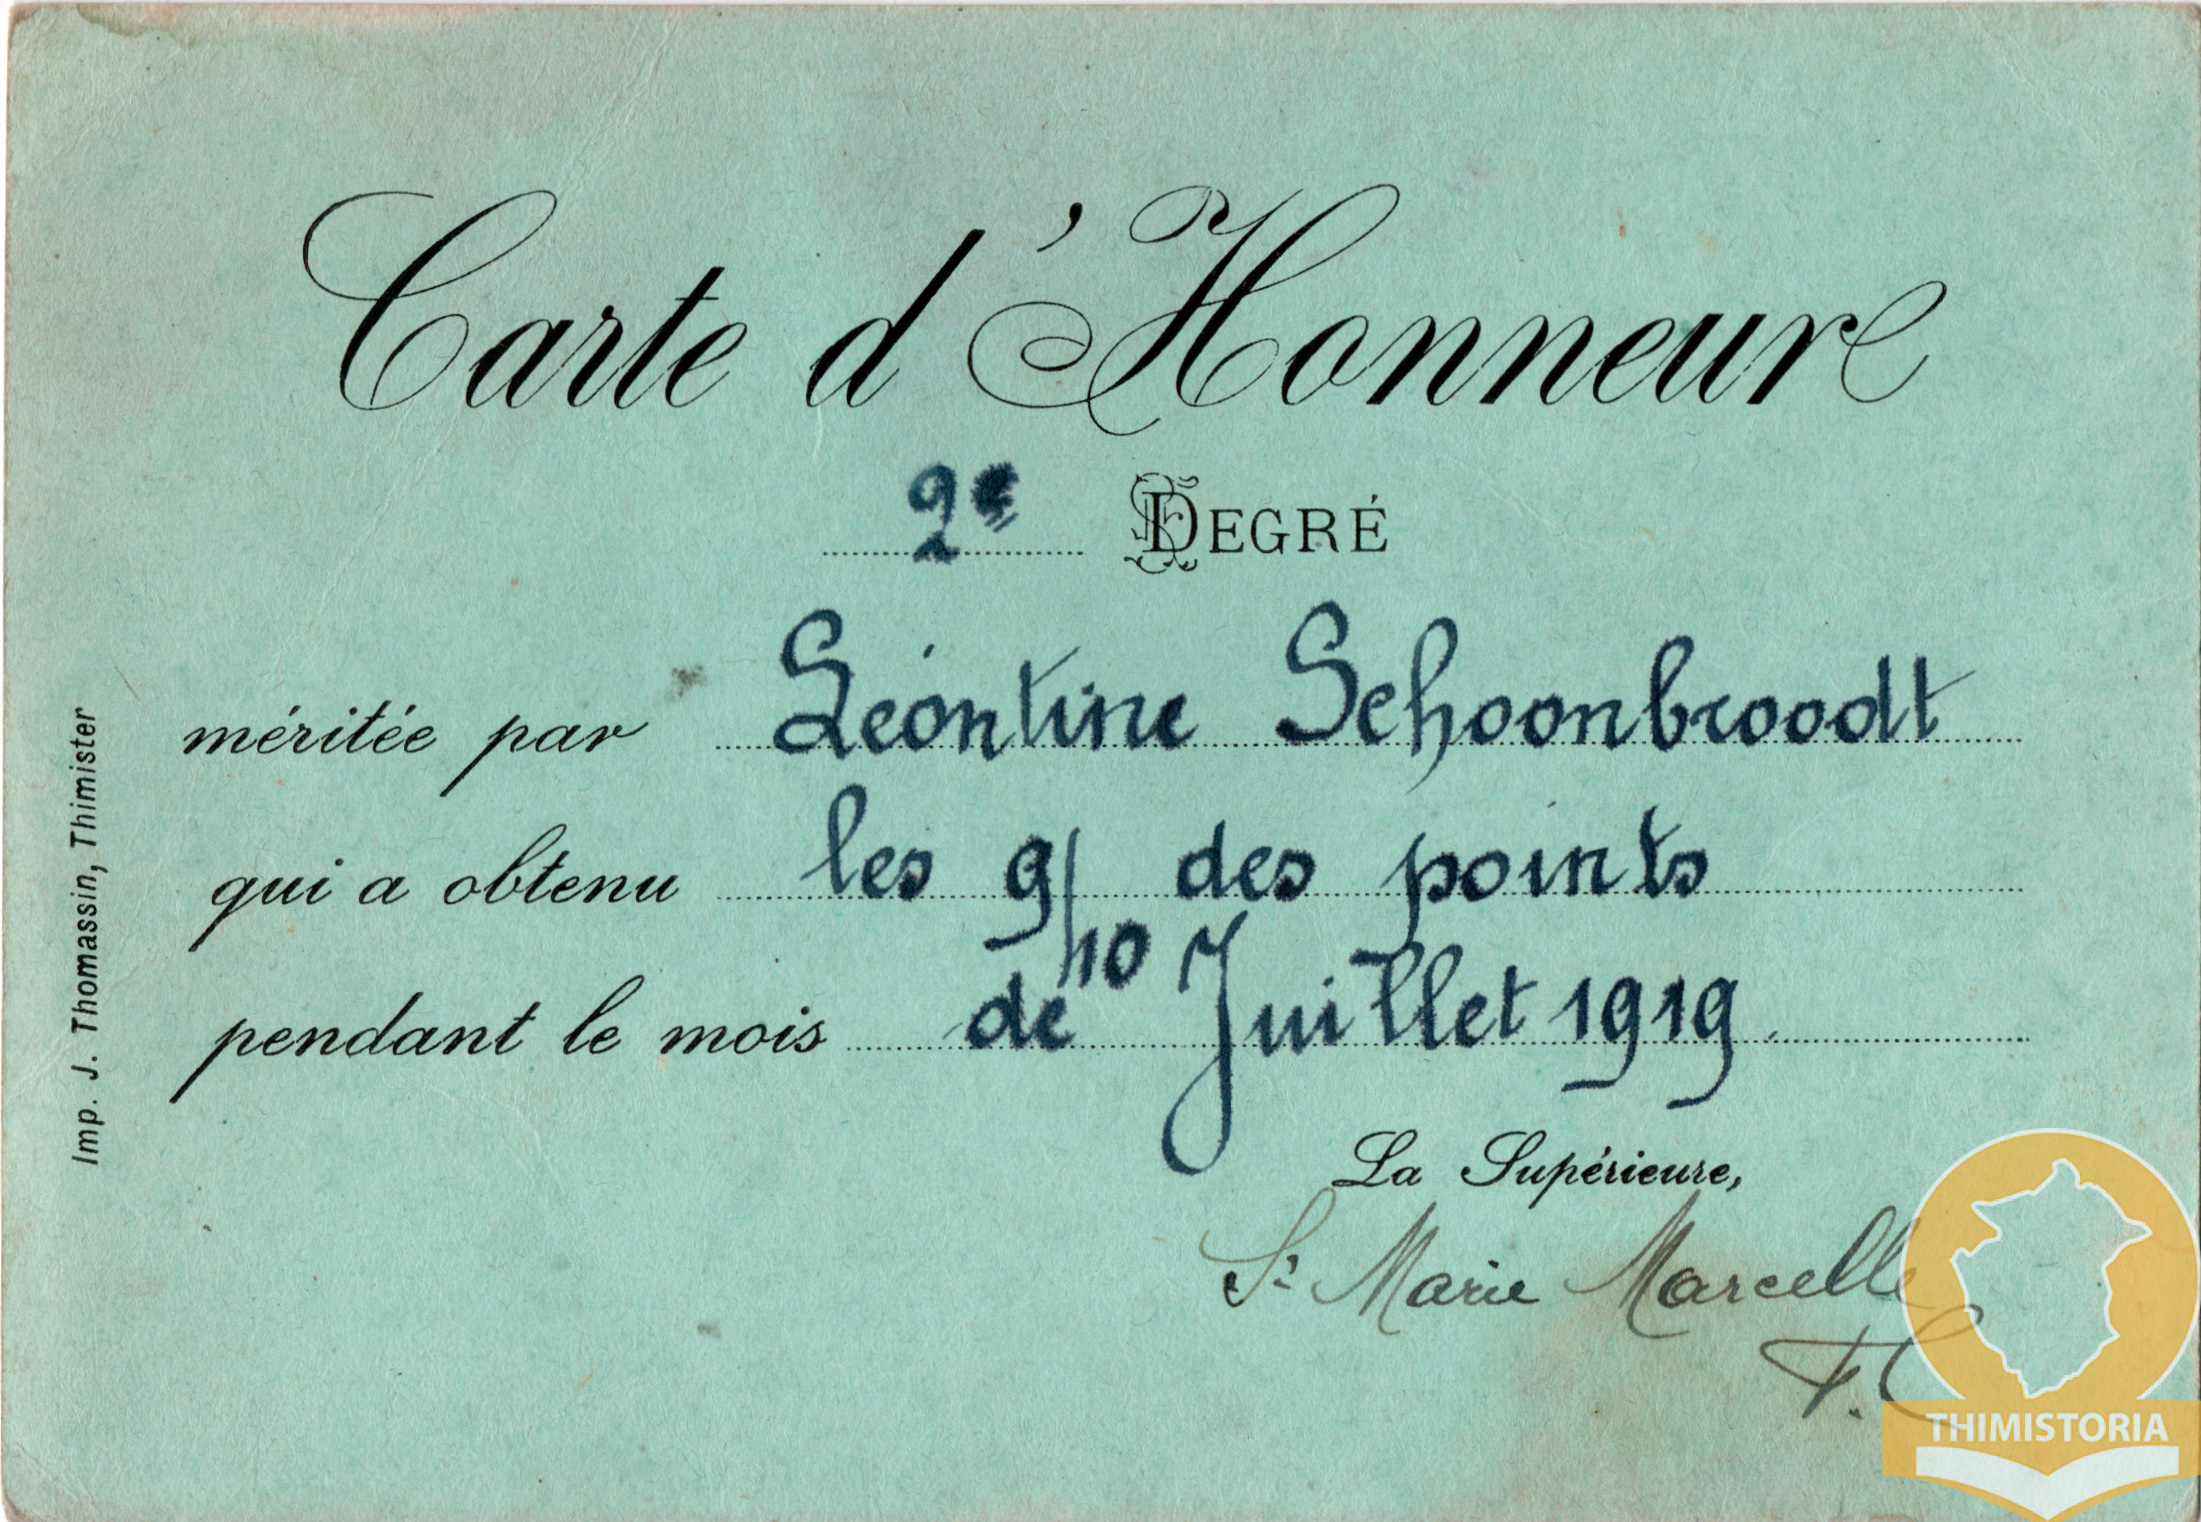 Carte d'Honneur
2e DEGRÉ
méritée par Léontine Schoonbroodt
qui a obtenu les 9/10 des points
pendant le mois de Juillet 1919
La Supérieure,
Sr Marie Marcelle
F. C
Imp. J. Thomassin, Thimister
THIMISTORIA